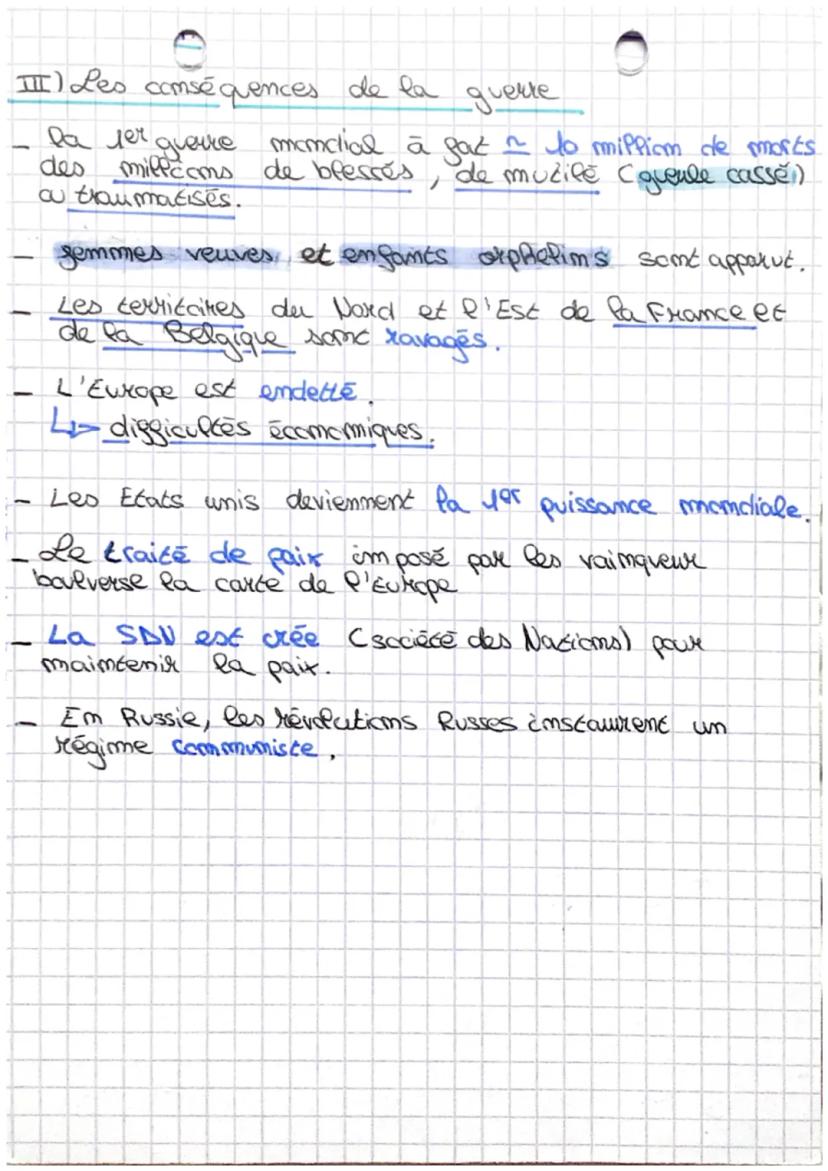 III) Les conséquences de la guerre
- la 1er guerre mondial à fat ≃ 10 million de morts
des millions de blessés, de mutilé (gueule cassé)
ou traumatisés.
- femmes veuves, et enfants orphelins sont apparut.
- Les territoires du Nord et l'Est de la France et
de la Belgique sont ravagés.
- L'Europe est endetté.
↳ difficultés économiques.
- Les Etats unis deviennent la 1er puissance mondiale.
- Le traité de paix imposé par les vainqueur
boulverse la carte de l'Europe
- La SDN est crée (société des Nations) pour
maintenir la paix.
- En Russie, les révolutions Russes instaurent un
régime communiste.